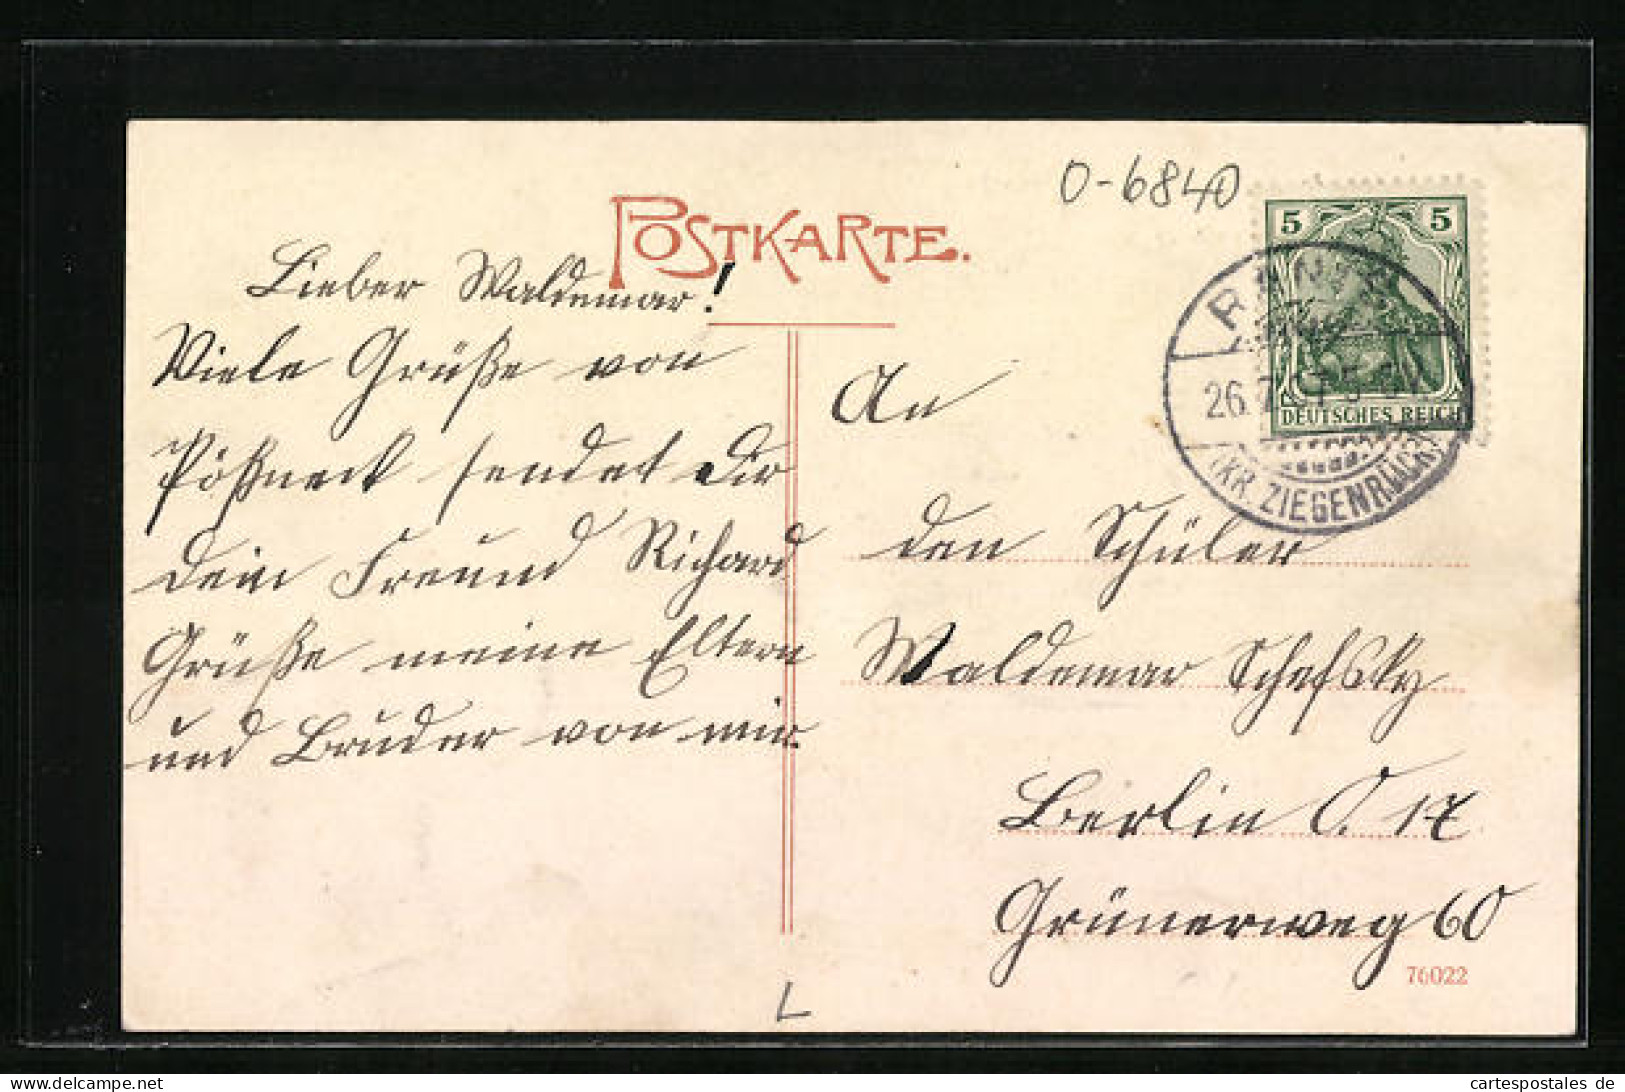 O-6840
POSTKARTE.
5 5
DEUTSCHES REICH
RANIS
26.7.07 5-6N.
(KR. ZIEGENRÜCK)
Lieber Waldemar!
Viele Grüße von
Pößneck sendet Dir
Dein Freund Richard
Grüße meine Eltern
und Bruder von mir.
An
den Schüler
Waldemar Schefsky
Berlin O. 17
Grünerweg 60
76022
L
cartespostales de
cartespostales.de